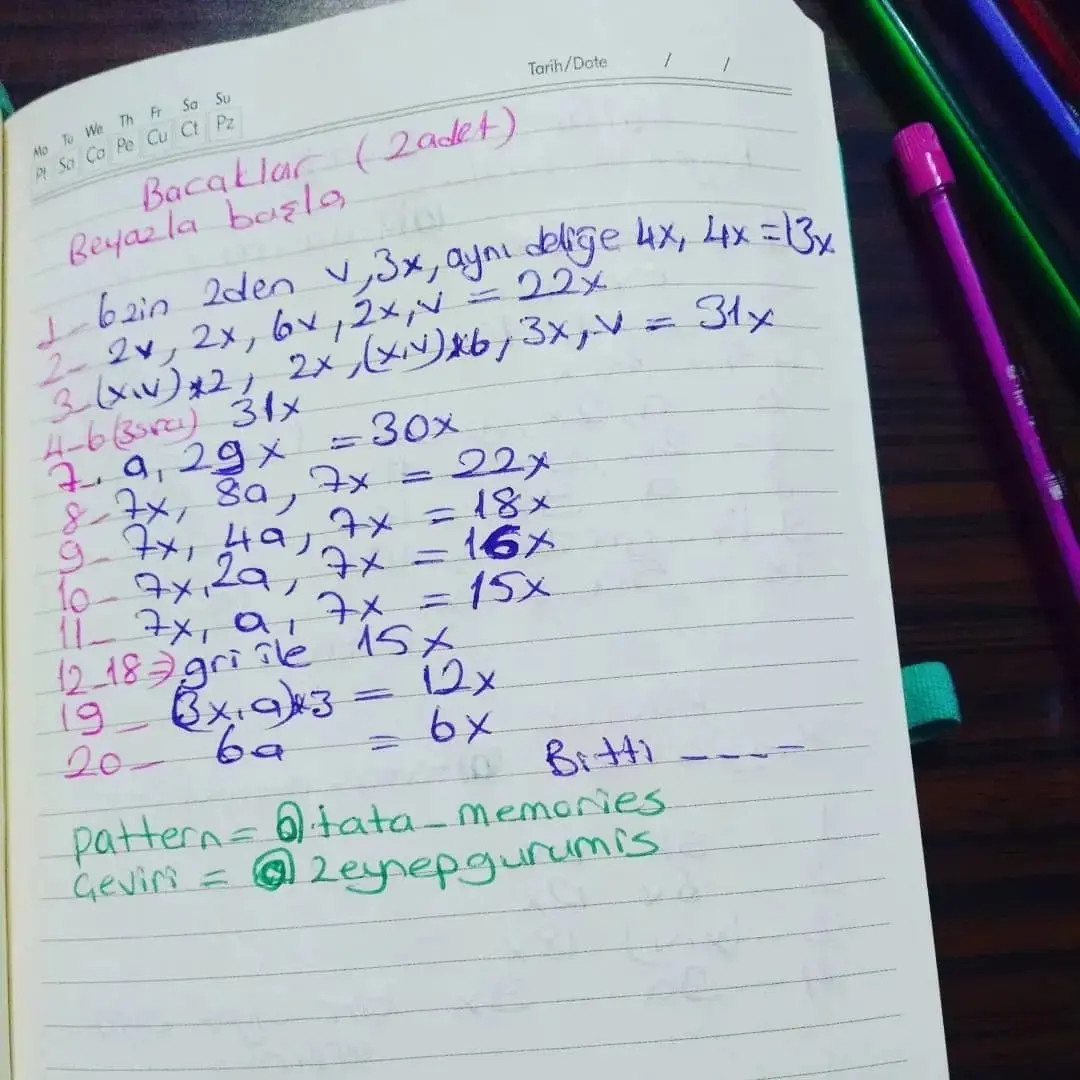 Tarih/Date / /
Mo Tu We Th Fr Sa Su
Pt Sa Ça Pe Cu Ct Pz
Bacaklar (2 adet)
Beyazla başla
1- 6zin 2den v, 3x, aynı deliğe 4x, 4x = 13x
2- 2v, 2x, 6v, 2x, v = 22x
3- (x,v)*2, 2x, (x,v)*6, 3x, v = 31x
4-6 (3sıra) 31x
7- a, 29x = 30x
8- 7x, 8a, 7x = 22x
9- 7x, 4a, 7x = 18x
10- 7x, 2a, 7x = 16x
11- 7x, a, 7x = 15x
12-18 ⇒ gri ile 15x
19- (3x, a)*3 = 12x
20- 6a = 6x
Bitti ----
pattern = @.tata_memories
Çeviri = @zeynepgurumis